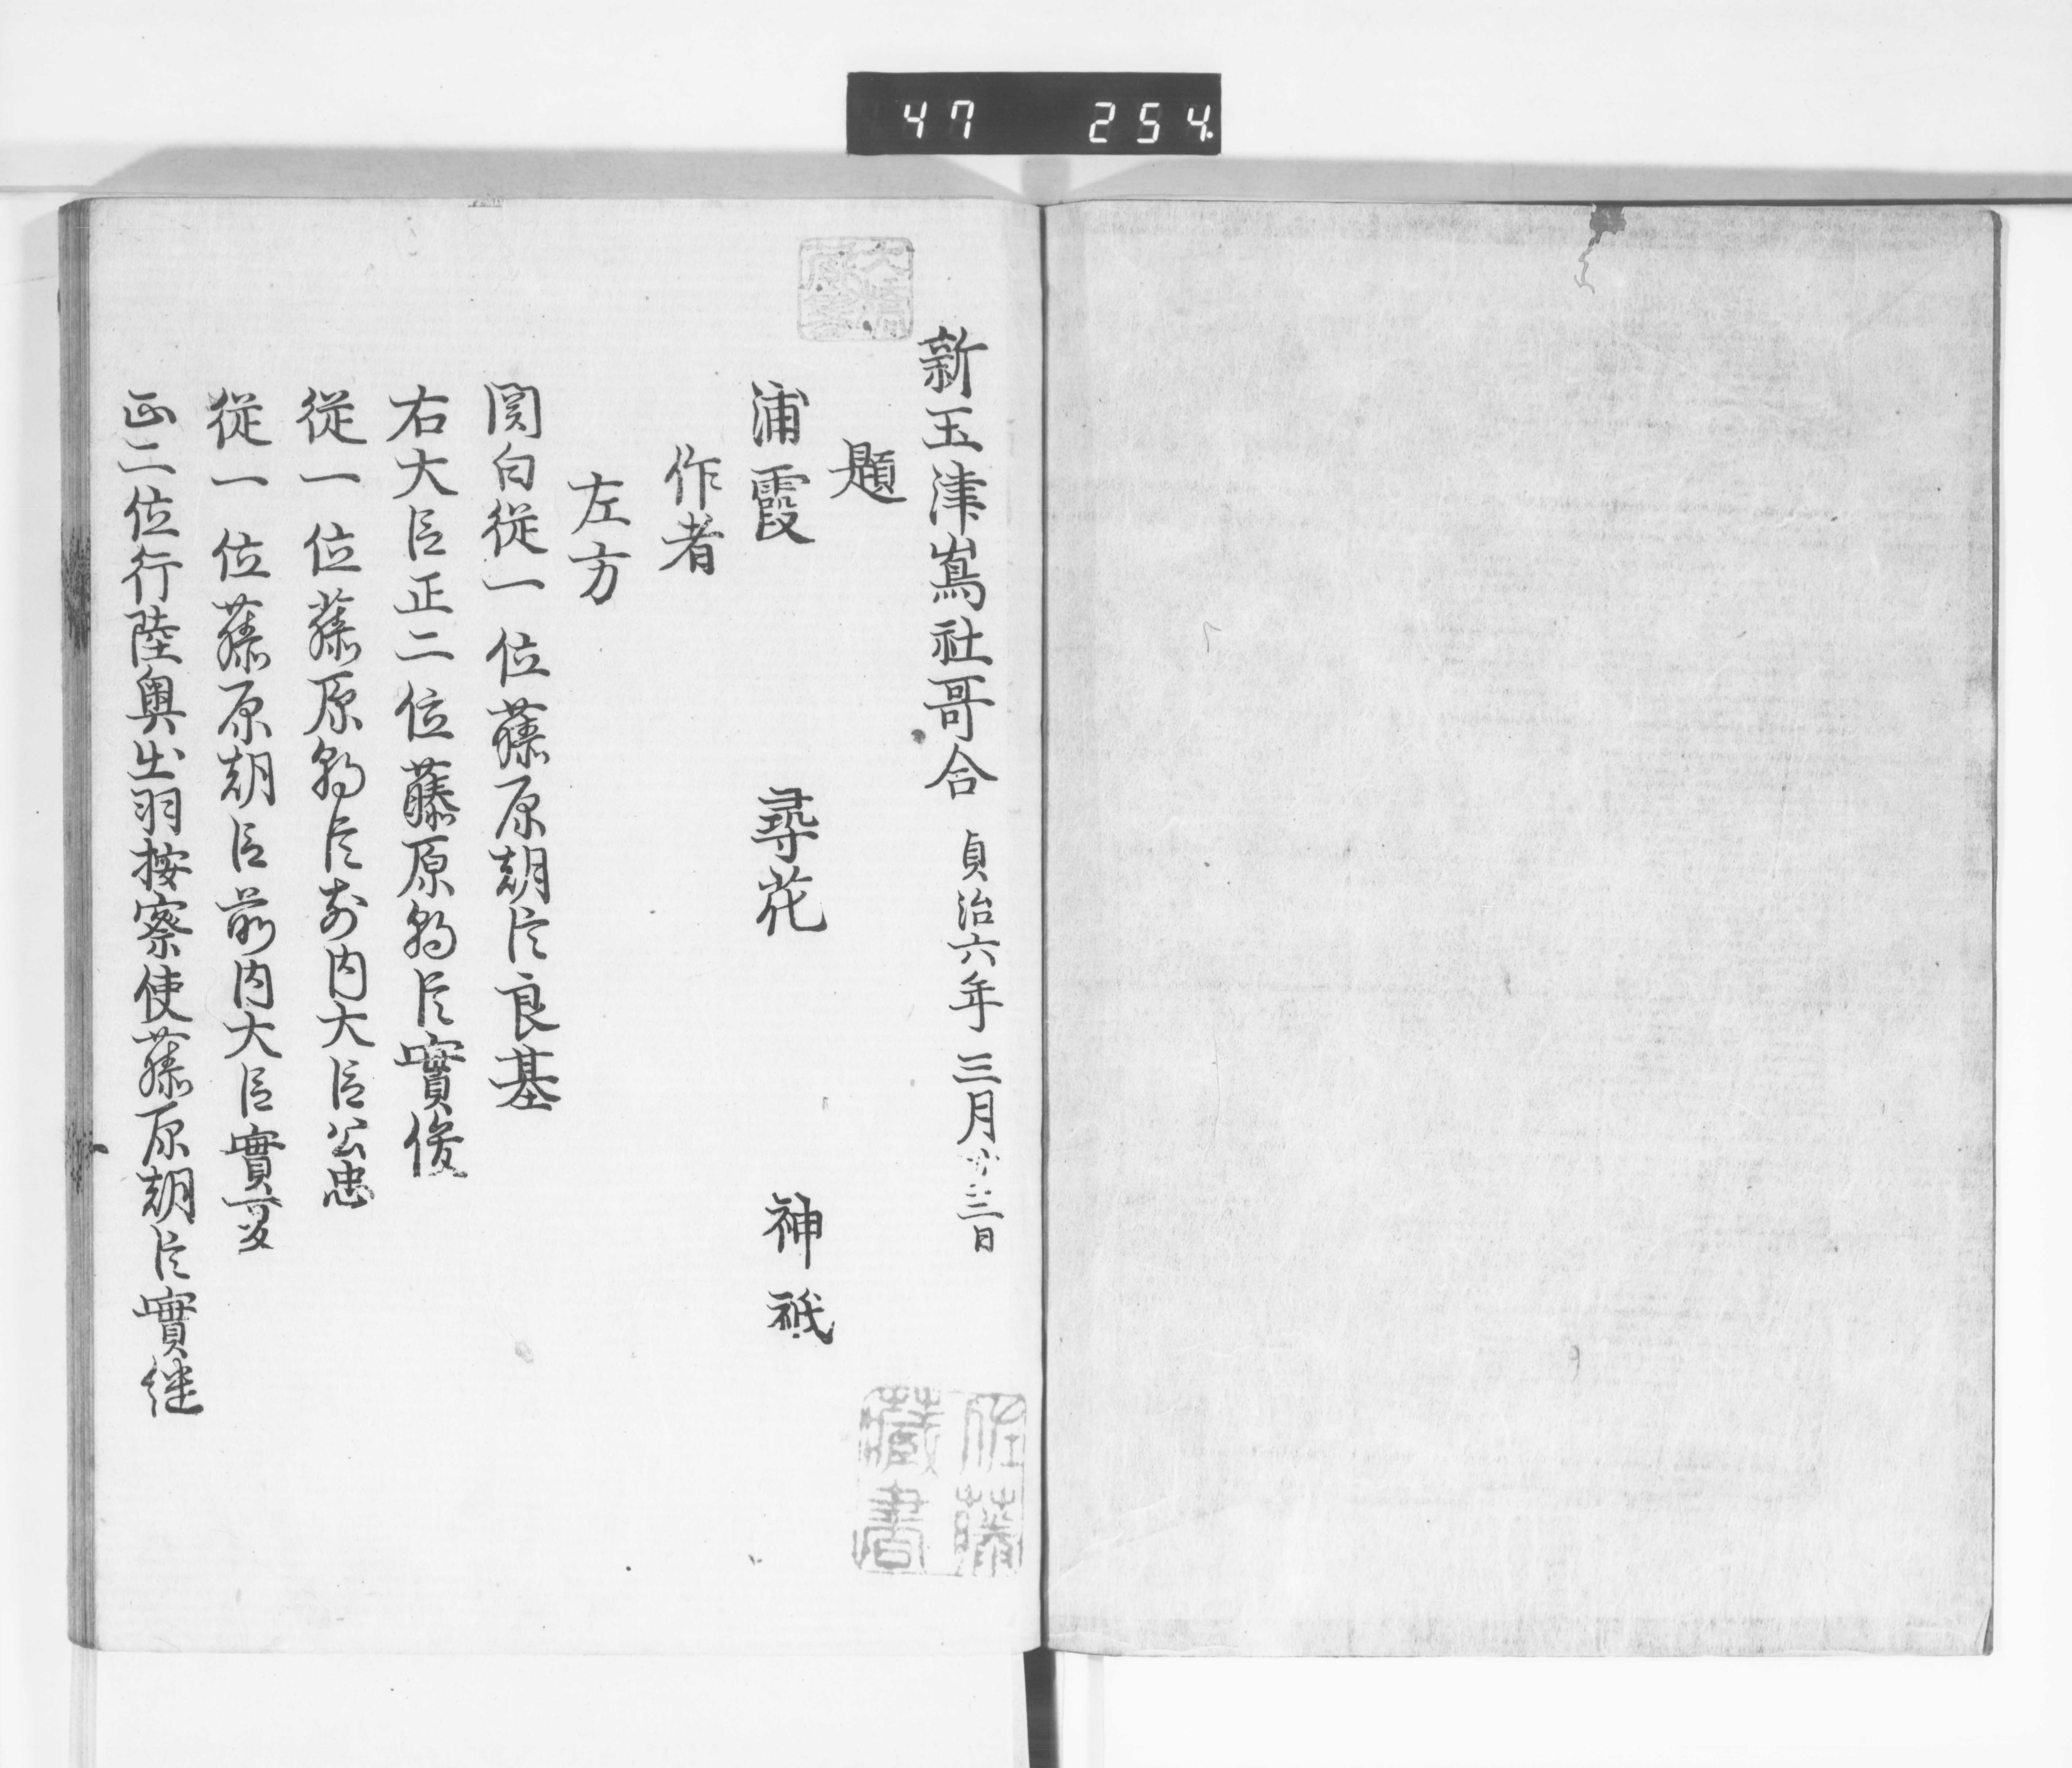 47 254.
新玉津嶌社哥合 貞治六年三月廿三日
題
浦霞 尋花 神祇
作者
左方
関白從一位藤原朝臣良基
右大臣正二位藤原朝臣實俊
從一位藤原朝臣前内大臣公忠
從一位藤原朝臣前内大臣實夏
正二位行陸奥出羽按察使藤原朝臣實継
佐藤
蔵書